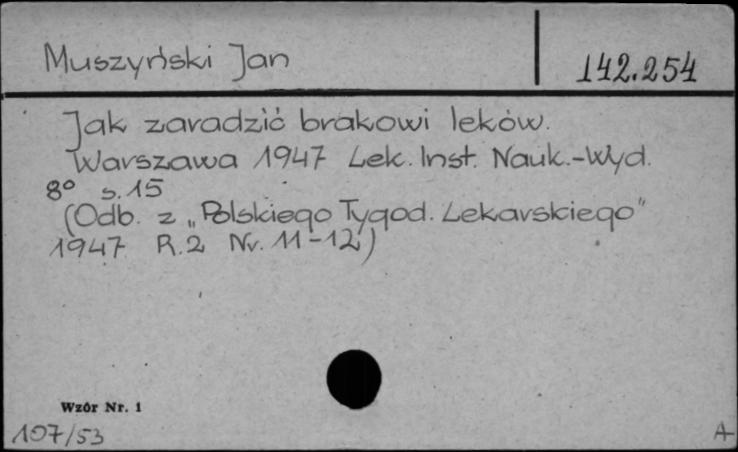 Muszyński Jan
142.254
Jak zaradzić brakowi leków.
Warszawa 1947 Lek. Inst. Nauk.-Wyd.
8° s. 15
(Odb. z „Polskiego Tygod. Lekarskiego"
1947 R.2 Nr. 11-12)
Wzór Nr. 1
107/53
A